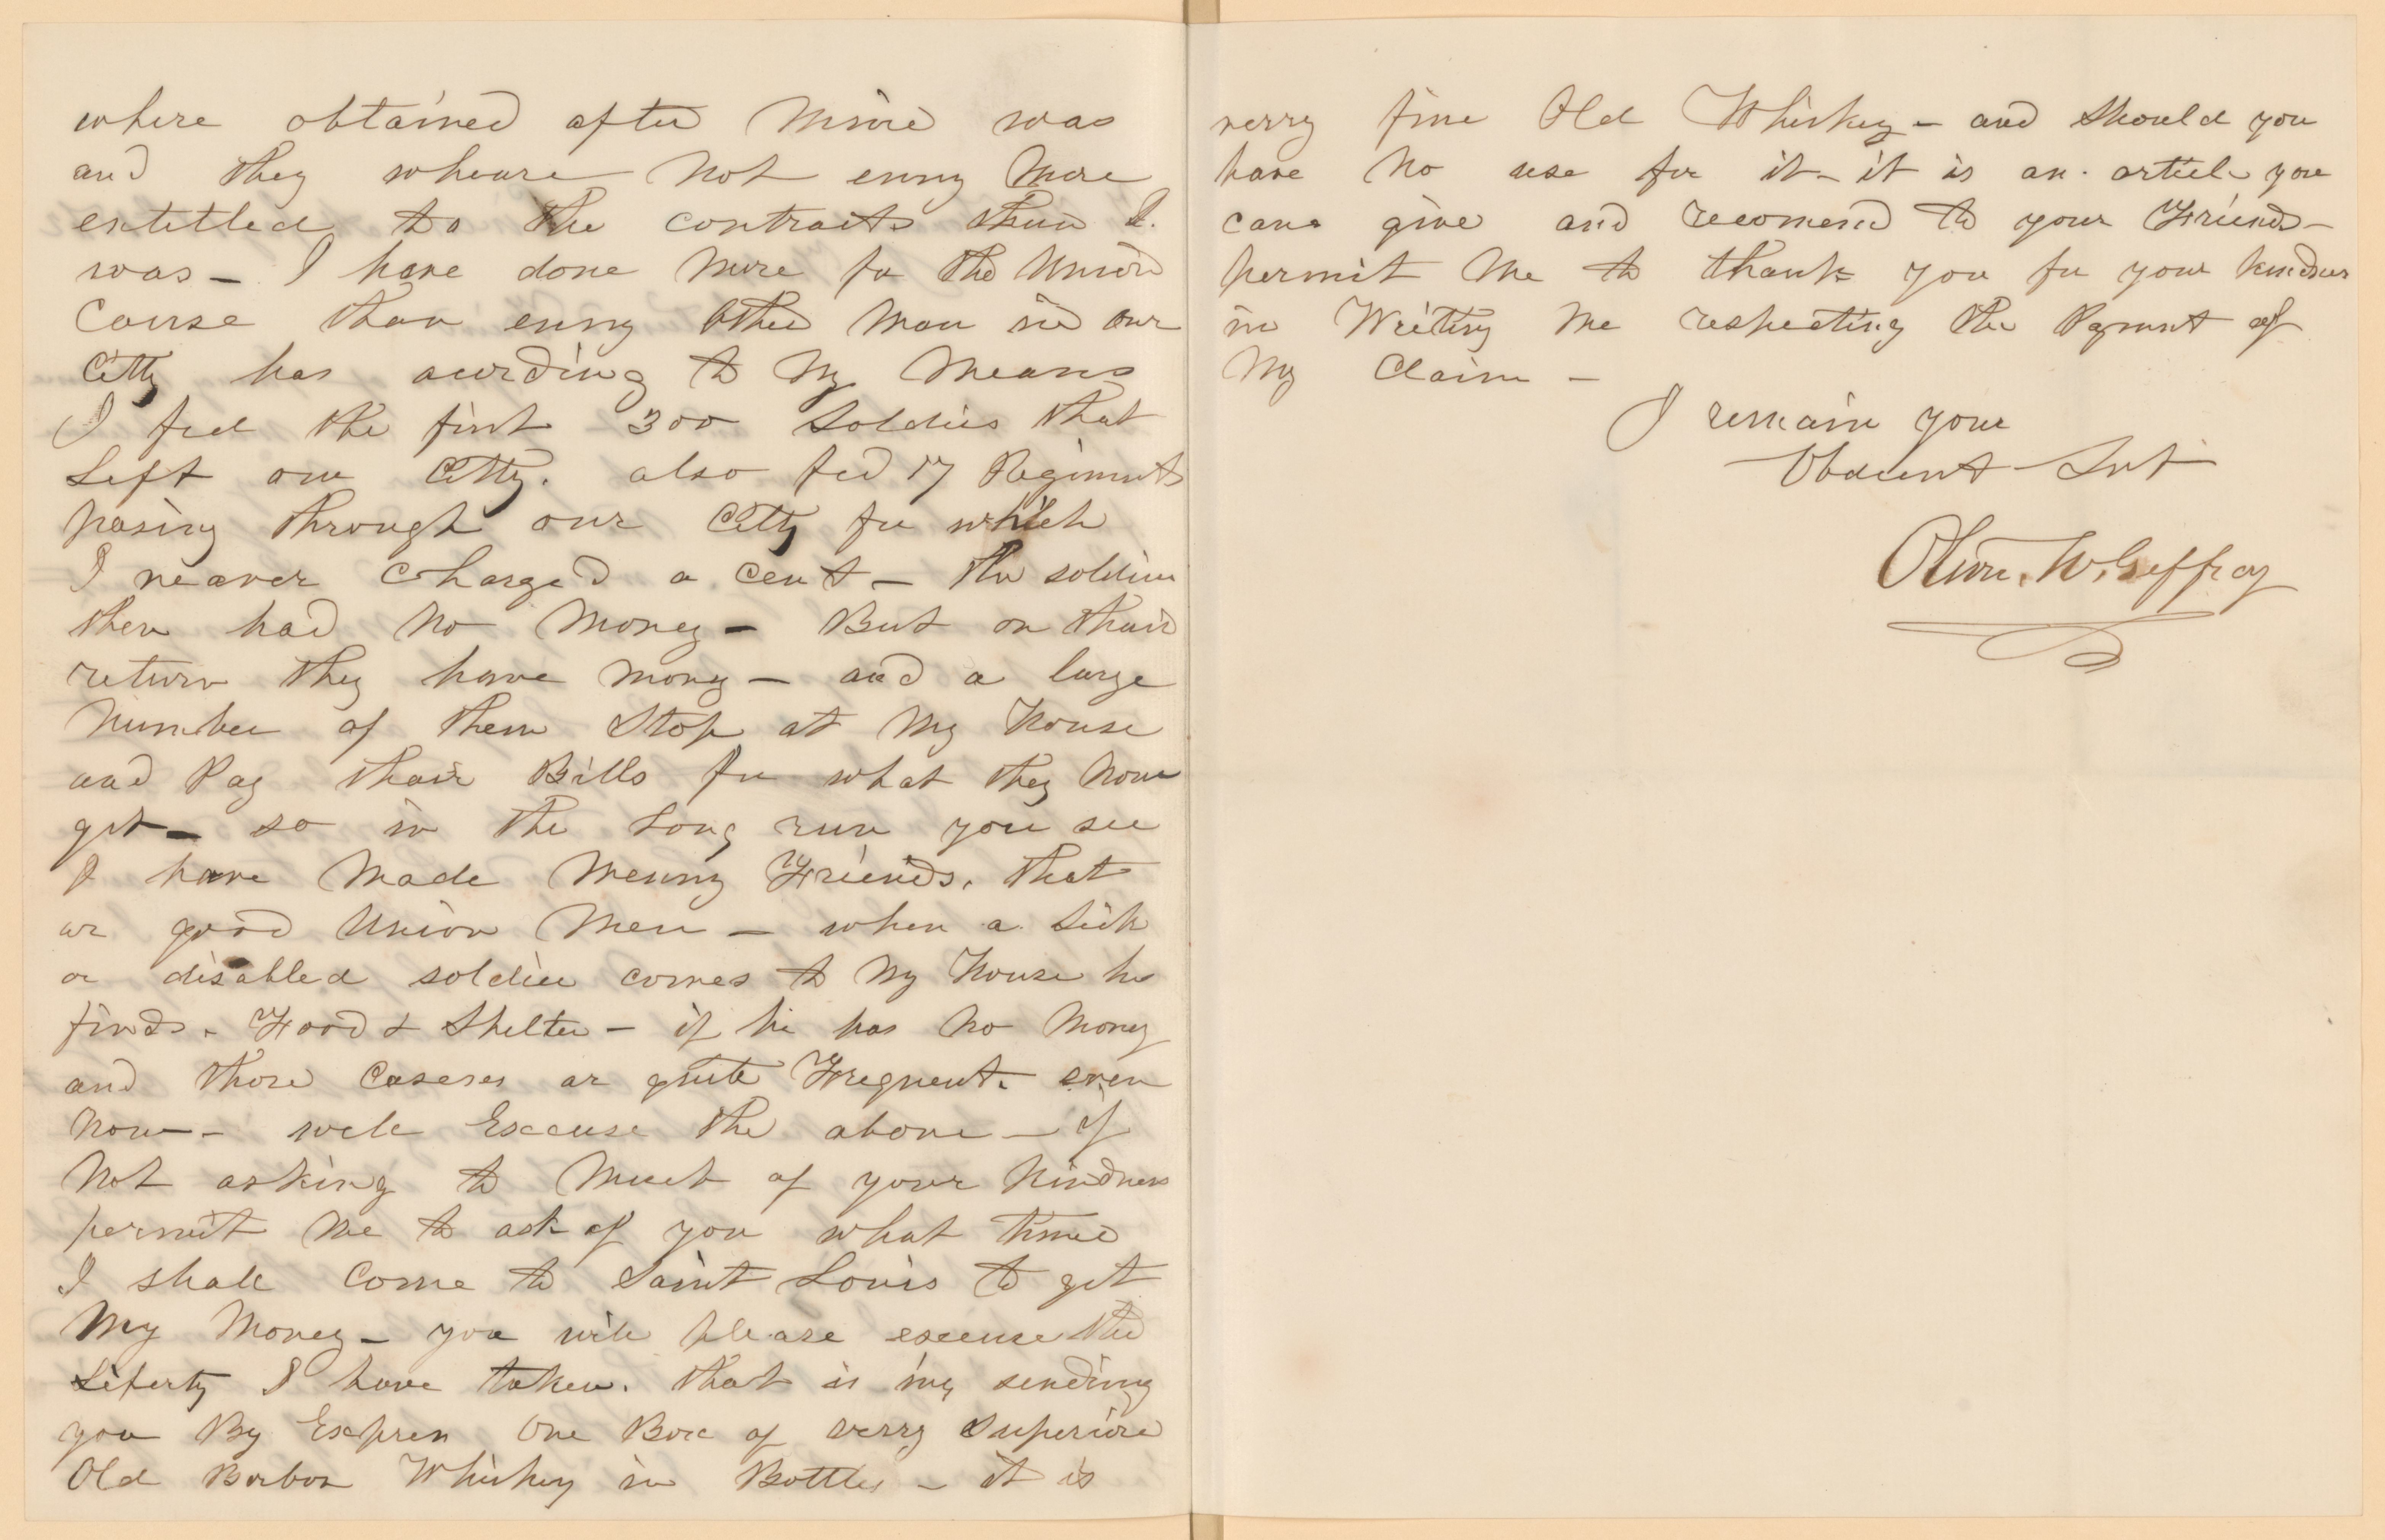 where obtained after Mine was
and they wheare Not enny More
entitled to the contracts than I.
was – I have done More for the Union
Cause than enny Other Man in our
Citty has acurding to My Means
I fed the first 300 Soldiers that
Left our Citty. also fed 17 Regiments
pasing through our Citty for which
I neaver Charged a Cent – the soldiers
then had No Money – But on thair
return they have Mony – and a large
Number of them Stop at My House
and Pay thair Bills for what they Now
get – so in the Long run you see
I have Made Menny Friends. that
ar good Union Men – when a Sick
or disabled soldier comes to My House he
finds. Food & Shelter – if he has No Mony
and those Caseses ar quite Frequent. even
Now – well Excuse the above – if
Not asking to Much of your Kindness
permit Me to ask of you what time
I shall Come to Saint Louis to get
My Money – you will please excuse the
Liberty I have taken. that is my sending
you By Express One Box of verry Superiore
Old Borbon Whiskey in Bottles – it is
verry fine Old Whiskey – and Should you
have No use for it – it is an. article you
can give and recomend to your Friends –
permit Me to thank you for your kindness
in Writing Me respecting the Payment of
My Claim –
I remain your
Obedient Svt
W. Geffroy